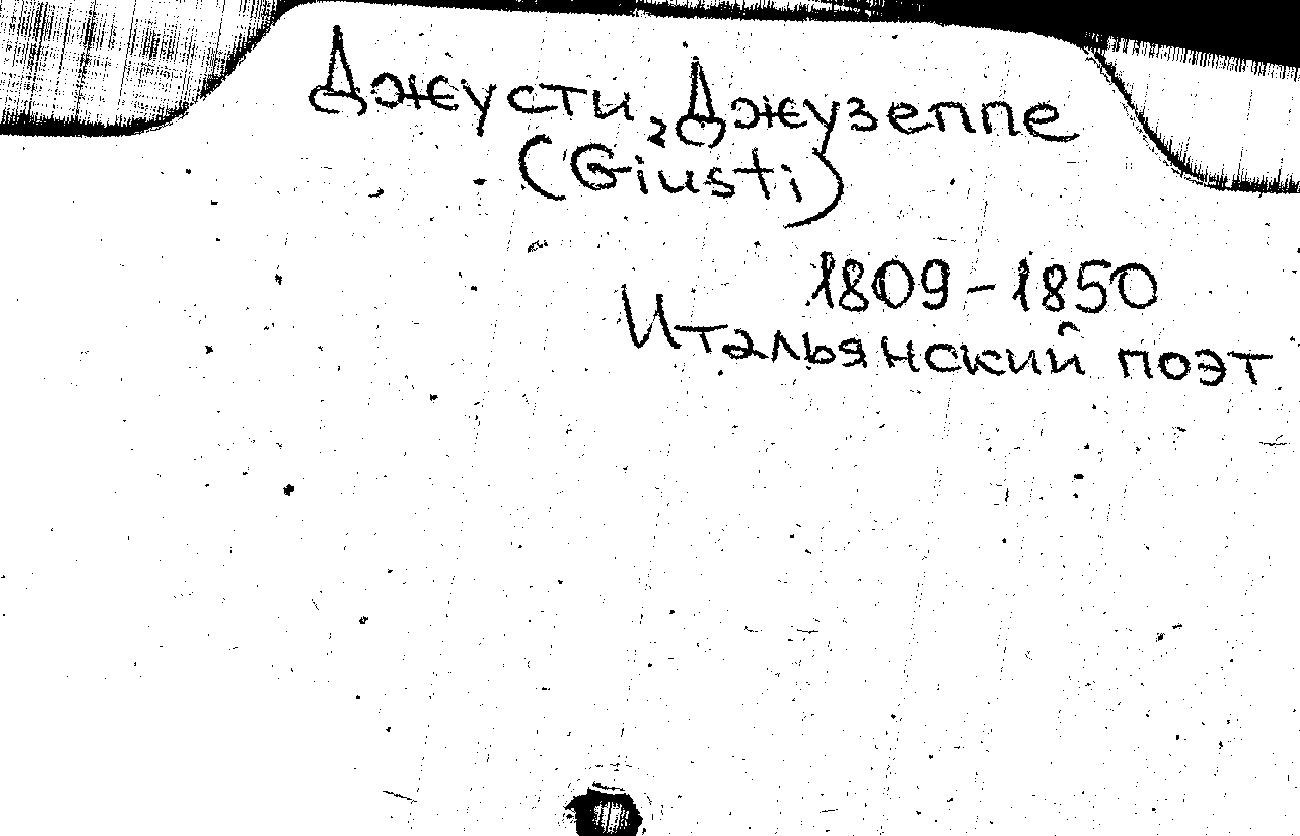 Джусти, Джузеппе
(Giusti)
1809-1850
Итальянский поэт